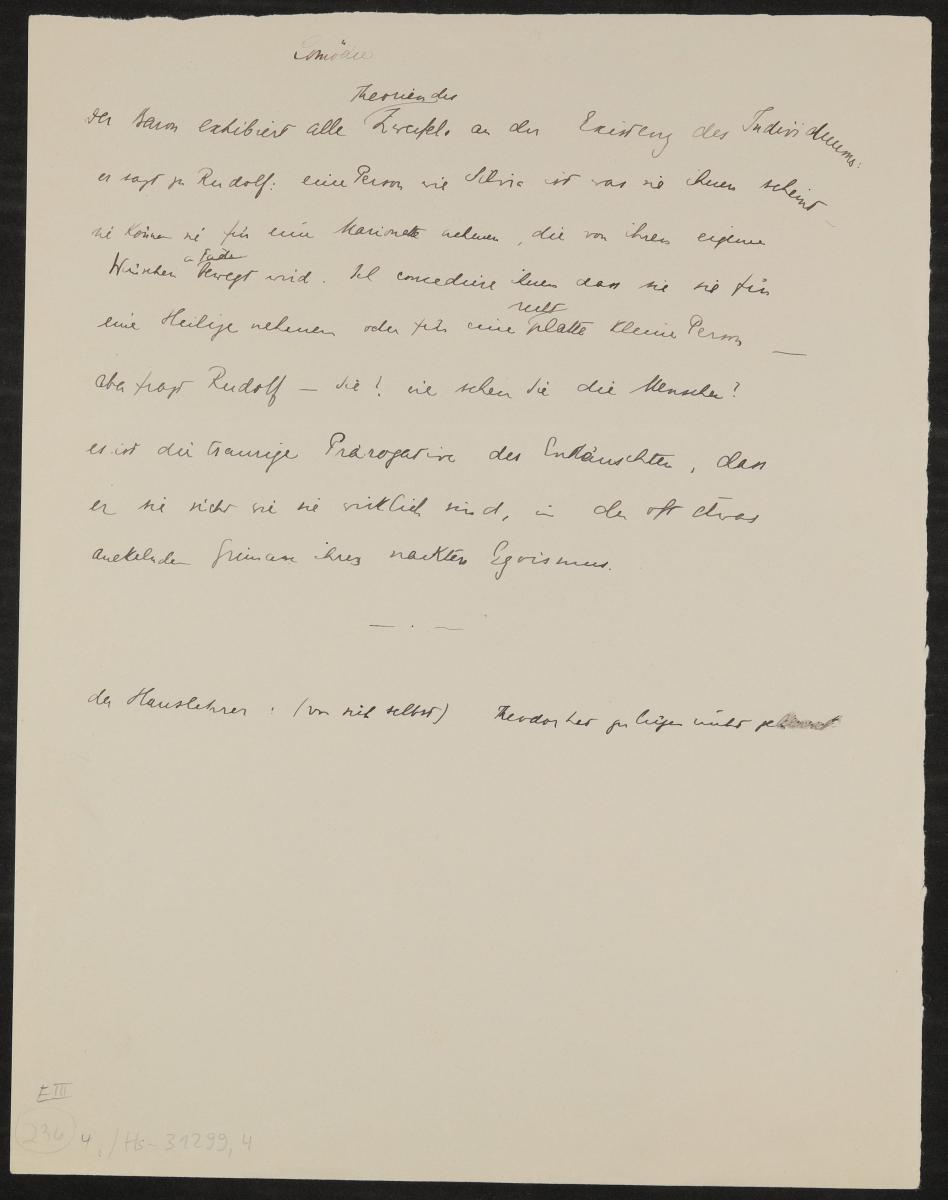 Comödie
Theorien des
Der Baron exhibiert alle Zweifels an der Existenz des Individuums:
er sagt zu Rudolf: eine Person wie Silvia ist was sie ihnen scheint
sie können sie für eine Marionette nehmen, die von ihren eigenen
u Furcht
Wünschen bewegt wird. Ich concediere ihnen dass sie sie für
recht
eine Heilige nehmen oder für eine platte kleine Person —
aber fragt Rudolf — Sie? wie sehen Sie die Menschen?
es ist die traurige Prärogative des Enttäuschten, dass
er sie sieht wie sie wirklich sind, in der oft etwas
anekelnden Grimasse ihres nackten Egoismus.
— . —
der Hauslehrer: (von sich selbst) Theodor hat zu lügen nicht
E III
236 4 /Hs-31299,4